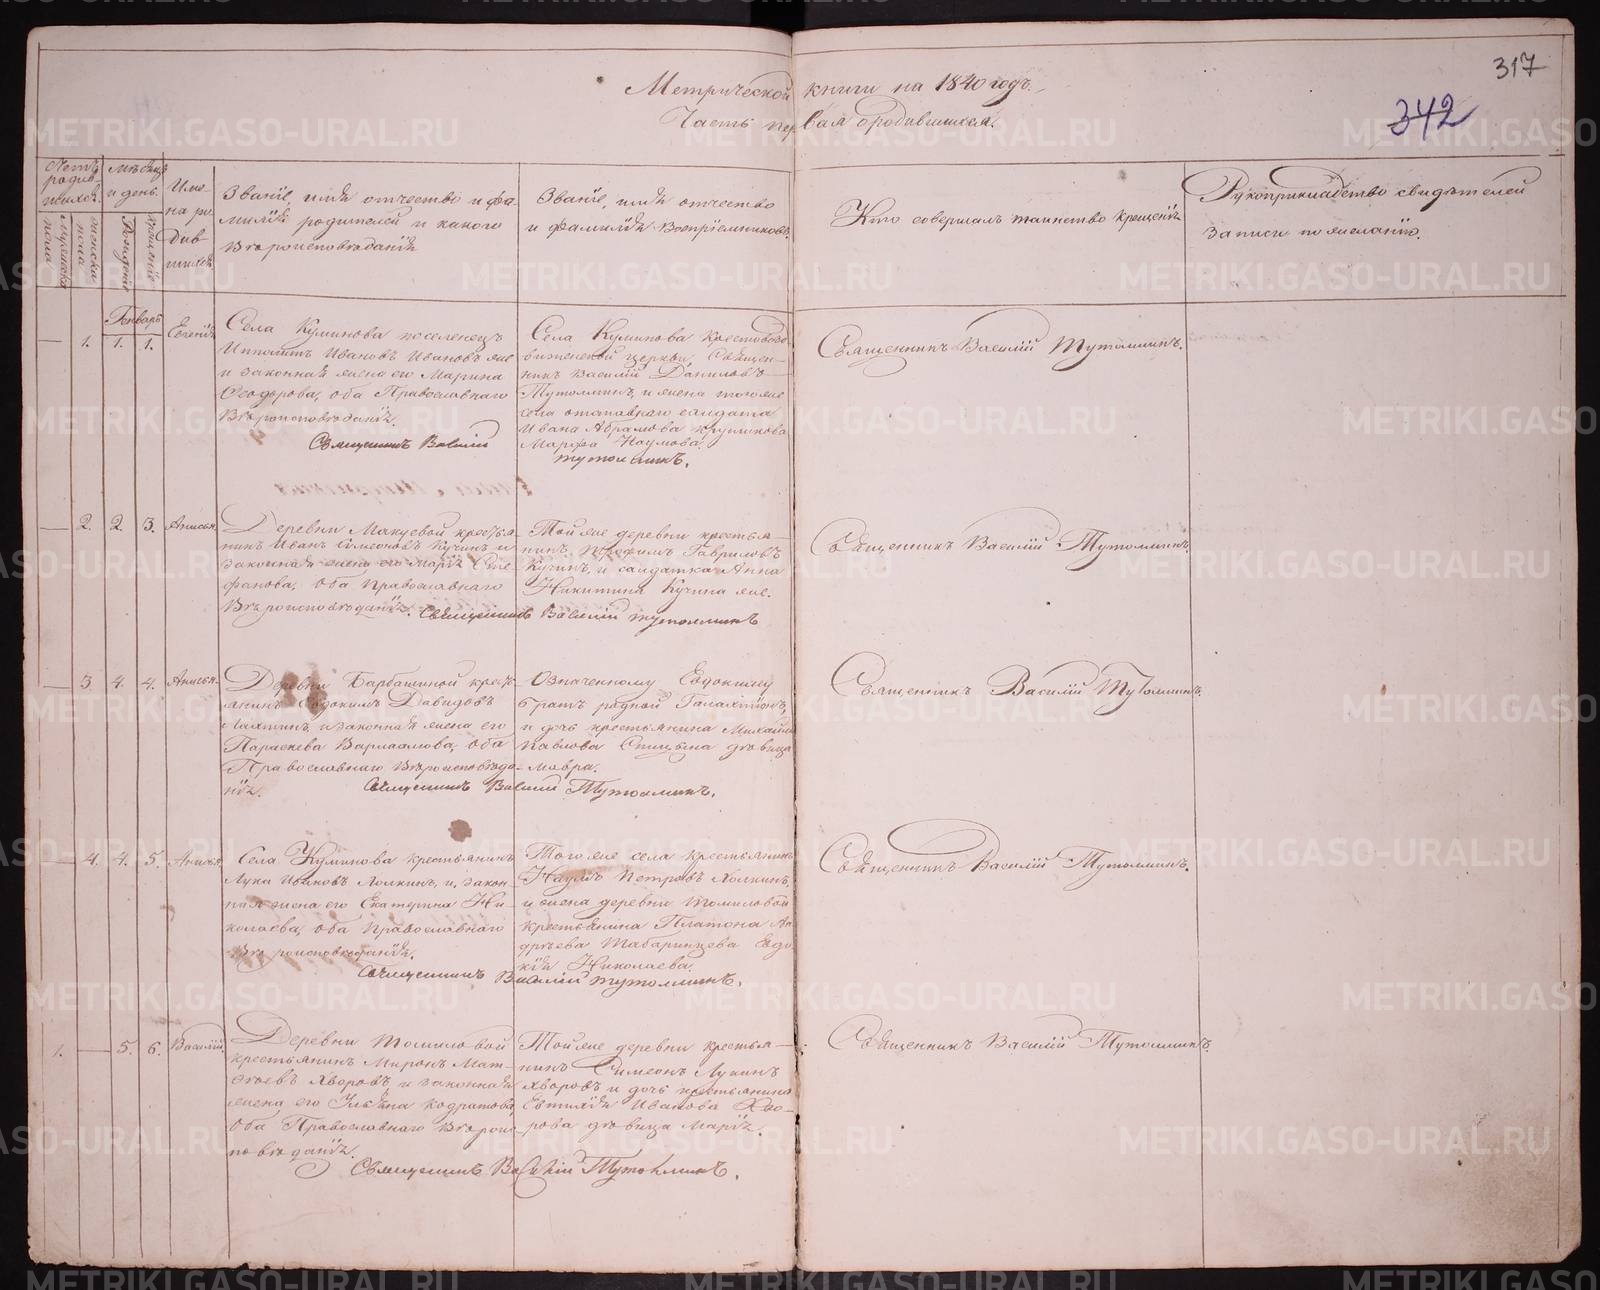 317
342
Метрической книги на 1840 годъ.
Часть первая о родившихся.
Счетъ родив-шихся.
мужеска пола
женска пола
Мѣсяцъ и день.
Рожденiе
Крещенiе
Име-
на ро
див
шихся
Званiе, имя отчество и фа-
милiя родителей и какого
Вѣроисповѣданiя
Званiе, имя отчество
и фамилiя Воспрiемниковъ.
Кто совершалъ таинство крещенiя
Рукоприкладство свидѣтелей
записи по желанiю.
Генварь
1. 1. 1.
Села Куминова
Ипполитъ Ивановъ Ивановъ же
и законная жена его Марина
Феодорова, оба Православнаго
Вѣроисповѣданiя.
Села Куминова Крестовоз-
движенской церкви, Священ-
никъ Василiй Даниловъ
Тутолминъ, и жена тогоже
села отставнаго салдата
Ивана Абрамова
Марфа Наумова.
Священникъ Василiй Тутолминъ.
Священникъ Василiй Тутолминъ.
2. 2. 3. Анисья.
Деревни Макуевой кресть-
янинъ Иванъ Симеоновъ Кучинъ и
законная жена его Марiя Сте
фанова, оба Православнаго
Вѣроисповѣданiя.
Тойже деревни крестья-
нинъ, Трофимъ Гавриловъ
Кучинъ, и салдатка Анна
Никитина Кучина же.
Священникъ Василiй Тутолминъ
Священникъ Василiй Тутолминъ.
3 4. 4. Анисья.
Деревни Барбашиной крест-
янинъ Евдокимъ Давидовъ
и законная жена его
Параскева Варлаамова, оба
Православнаго Вѣроисповѣда-
нiя.
Означенному Евдокиму
братъ родной Галахтiонъ,
и дочь крестьянина Михаила
Павлова Спицына дѣвица
Мавра.
Священникъ Василiй Тутолминъ.
Священникъ Василiй Тутолминъ.
4. 4. 5. Анисья.
Села Куминова крестьянинъ
Лука Ивановъ Холкинъ, и, закон-
ная жена его Екатерина Ни-
колаева, оба Православнаго
Вѣроисповѣданiя.
Тогоже села крестьянинъ
Наумъ Петровъ Холкинъ,
и жена деревни Томиловой
крестьянина Платона Ан
дрѣева Табаринцева Евдо
кiя Николаева.
Священникъ Василiй Тутолминъ.
Священникъ Василiй Тутолминъ.
1. 5. 6. Василiй.
Деревни Томиловой
крестьянинъ Миронъ Мат-
ѳѣевъ Хворовъ, и законная
жена его Улiяна Кодратова,
оба Православнаго Вѣроис-
повѣданiя.
Тойже деревни крестья-
нинъ Симеонъ Лукинъ
Хворовъ и дочь крестьянина
Евтихiя Иванова Хво-
рова дѣвица Марiя.
Священникъ Василiй Тутолминъ.
Священникъ Василiй Тутолминъ.
METRIKI.GASO-URAL.RU